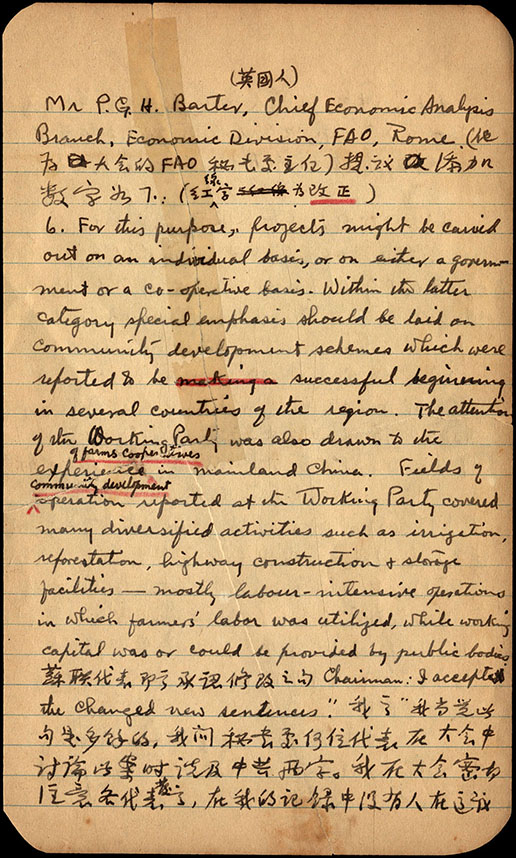 (英國人)
Mr P. G. H. Barter, Chief Economic Analysis
Branch, Economic Division, FAO, Rome. (他
为大会的 FAO 秘书处主任) 提议 添加
数字如下: (红線字 为改正)
6. For this purpose, projects might be carried
out on an individual basis, or on either a govern-
ment or a co-operative basis. Within the latter
category special emphasis should be laid on
community development schemes which were
reported to be making a successful beginning
in several countries of the region. The attention
of the Working Party was also drawn to the
of farms cooperatives
experience in mainland China. Fields of
community development
operation reported at the Working Party covered
many diversified activities such as irrigation,
reforestation, highway construction & storage
facilities — mostly labour-intensive operations
in which farmers' labor was utilized, while working
capital was or could be provided by public bodies.
蘇联代表即言承認修改之句 Chairman: I accepted
the changed new sentences." 我言 "我当觉此
句是多餘的, 我问秘书处何位代表在大会中
討論此案时談及中共两字. 我在大会密切
注意各代表發言, 在我的記録中没有人在這議